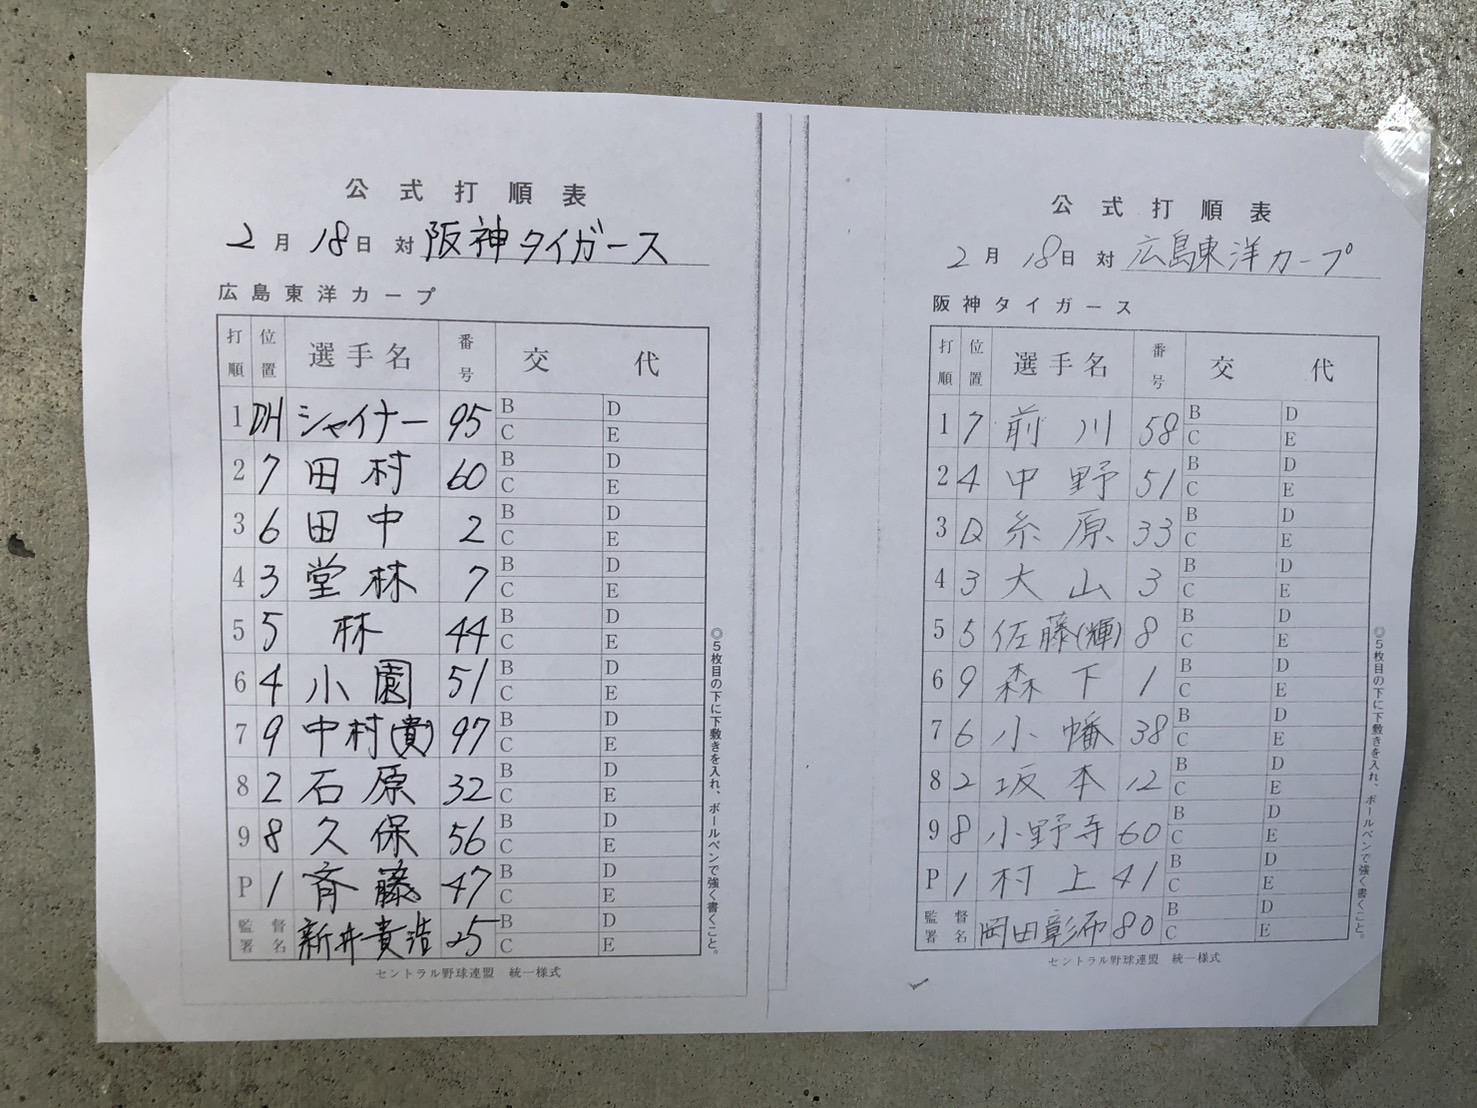 公式打順表
2月18日 対 阪神タイガース
広島東洋カープ
打順 位置 選手名 番号 交代
1 DH シャイナー 95 B D
C E
2 7 田村 60 B D
C E
3 6 田中 2 B D
C E
4 3 堂林 7 B D
C E
5 5 林 44 B D
C E
6 4 小園 51 B D
C E
7 9 中村(貴) 97 B D
C E
8 2 石原 32 B D
C E
9 8 久保 56 B D
C E
P 1 斉藤 47 B D
C E
監督署名 新井貴浩 25 B D
C E
セントラル野球連盟 統一様式
◎5枚目の下に下敷きを入れ、ボールペンで強く書くこと。
公式打順表
2月18日 対 広島東洋カープ
阪神タイガース
打順 位置 選手名 番号 交代
1 7 前川 58 B D
C E
2 4 中野 51 B D
C E
3 D 糸原 33 B D
C E
4 3 大山 3 B D
C E
5 5 佐藤(輝) 8 B D
C E
6 9 森下 1 B D
C E
7 6 小幡 38 B D
C E
8 2 坂本 12 B D
C E
9 8 小野寺 60 B D
C E
P 1 村上 41 B D
C E
監督署名 岡田彰布 80 B D
C E
セントラル野球連盟 統一様式
◎5枚目の下に下敷きを入れ、ボールペンで強く書くこと。